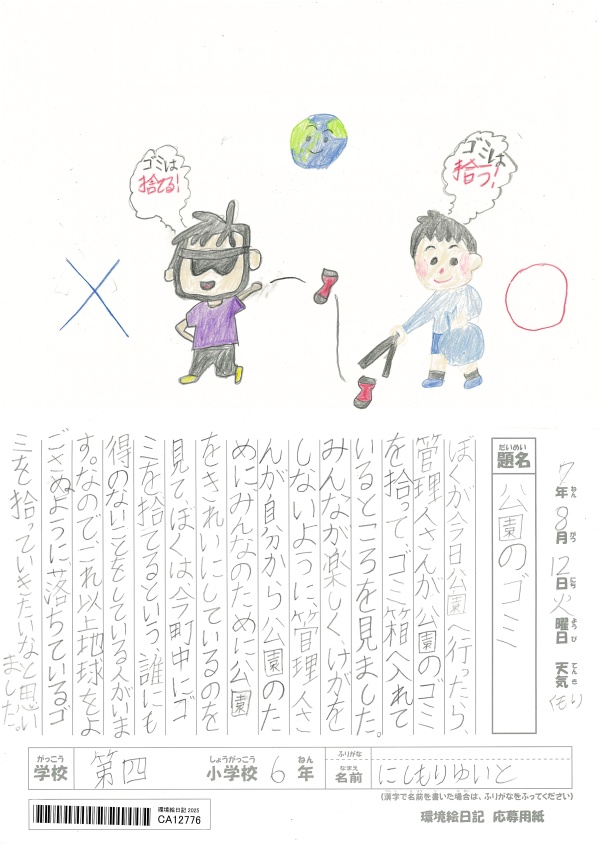 ゴミは
捨てる!
ゴミは
拾う!
7年8月12日火曜日 天気くもり
ねん がつ にち ようび てんき
だいめい
題名
公園のゴミ
ぼくが今日公園へ行ったら、
管理人さんが公園のゴミ
を拾って、ゴミ箱へ入れて
いるところを見ました。
みんなが楽しく、けがを
しないように管理人さ
んが自分から公園のた
めにみんなのために公園
をきれいにしているのを
見てぼくは、今町中にゴ
ミを捨てるという、誰にも
得のないことをしている人がいま
す。なのでこれ以上地球をよ
ごさぬように落ちているゴ
ミを拾っていきたいなと思い
ました。
がっこう しょうがっこう ねん ふりがな
学校 第四 小学校 6年 名前 にしもりゆいと
なまえ
(漢字で名前を書いた場合は、ふりがなをふってください)
環境絵日記 2025
CA12776
環境絵日記 応募用紙